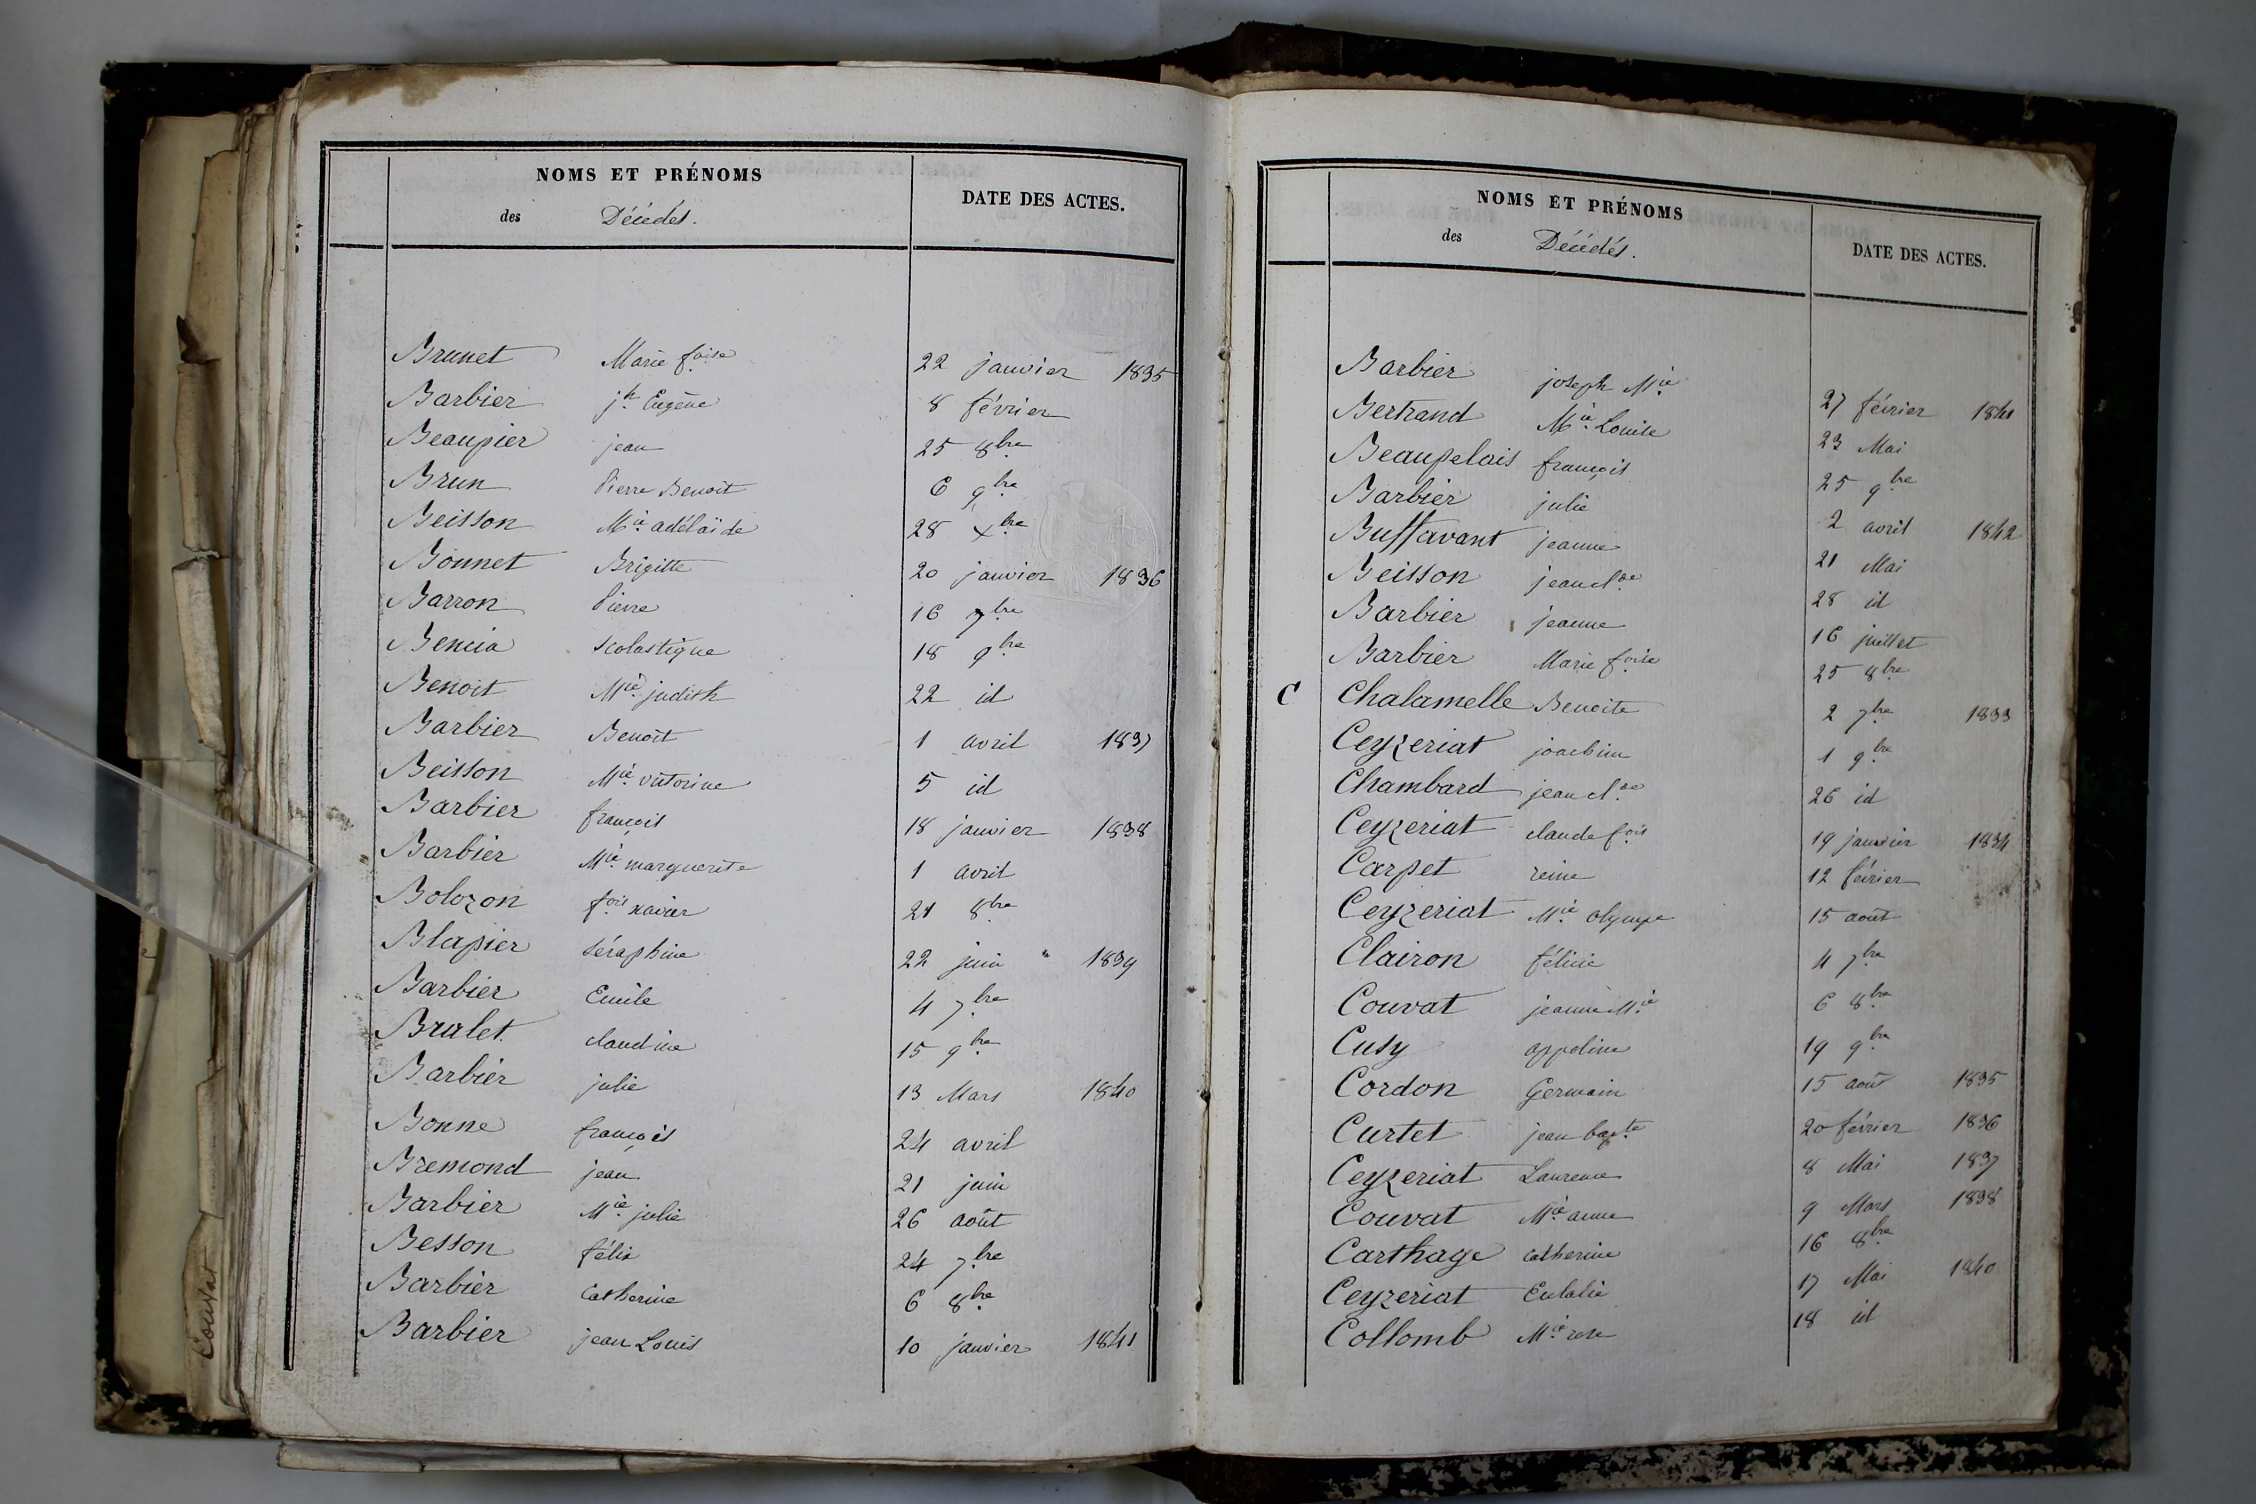 NOMS ET PRÉNOMS
des Décédés.
DATE DES ACTES.
Brunet Marie foise 22 janvier 1835
Barbier jh Eugène 8 février
Beaupier jean 25 8bre
Brun Pierre Benoit 6 9bre
Beisson Mie adélaïde 28 Xbre
Bonnet Brigitte 20 janvier 1836
Barron Pierre 16 7bre
Bencia scolastique 18 9bre
Benoit Mie judith 22 id
Barbier Benoît 1 avril 1837
Beisson Mie victorine 5 id
Barbier françois 18 janvier 1838
Barbier Mie marguerite 1 avril
Bolozon fois xavier 21 8bre
Blapier séraphine 22 juin " 1839
Barbier Emile 4 7bre
Brulet claudine 15 9bre
Barbier julie 13 Mars 1840
Bonne françois 24 avril
Bremond jean 21 juin
Barbier Mie julie 26 août
Besson félix 24 7bre
Barbier Catherine 6 8bre
Barbier jean Louis 10 janvier 1841
NOMS ET PRÉNOMS
des Décédés.
DATE DES ACTES.
Barbier joseph Mie 27 février 1841
Bertrand Mie Louise 23 Mai
Beaupelais françois 25 9bre
Barbier julie 2 avril 1842
Buffavant jeanne 21 Mai
Beisson jean Cde 28 id
Barbier jeanne 16 juillet
Barbier Marie foise 25 8bre
C Chalamelle Benoite 2 7bre 1833
Ceyzeriat joachim 1 9bre
Chambard jean Cde 26 id
Ceyzeriat claude fois 19 janvier 1834
Carpet reine 12 février
Ceyzeriat Mie olympe 15 août
Clairon félicie 4 7bre
Couvat jeanne Mie 6 8bre
Cusy appoline 19 9bre
Cordon Germain 15 août 1835
Curtet jean bapte 20 février 1836
Ceyzeriat Laurence 8 Mai 1837
Couvat Mie anne 9 Mars 1838
Carthage catherine 16 8bre
Ceyzeriat Eulalie 17 Mai 1840
Collomb Mie rose 18 id